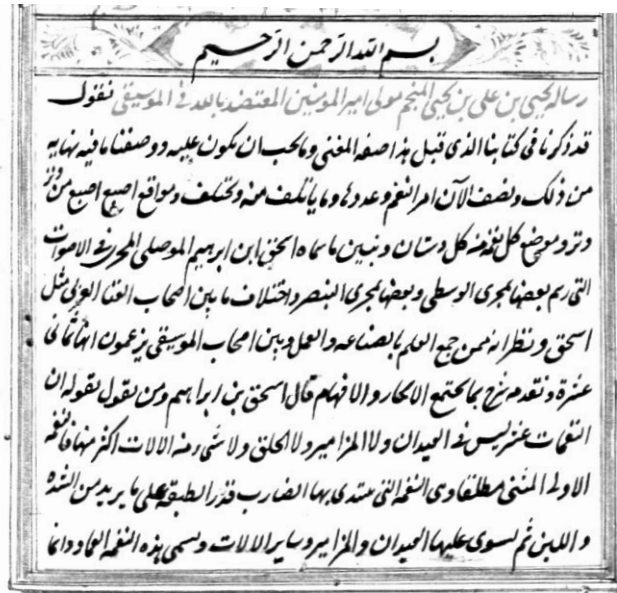 بسم الله الرحمن الرحيم
رسالة يحيى بن علي بن يحيى المنجم مولى امير المومنين المعتضد بالله في الموسيقى نقول
قد ذكرنا في كتابنا الذي قبل هذا صفه المغني وما يحب ان يكون عليه ووصفنا ما فيه نهايه
من ذلك ونصف الآن امر النغم وعددها وما ياتلف منه ويختلف ومواقع اصبع اصبع من وتر
وتر وموضع كل نغمه من كل دستان ونبين ما سماه اسحق ابن ابرهيم الموصلي المجرى في الاصوات
التي رسم بعضها بمجرى الوسطى وبعضها بمجرى البنصر واختلاف ما بين اصحاب الغنا العربي مثل
اسحق ونظرائه ممن جمع العلم بالصناعه والعمل وبين اصحاب الموسيقى يزعمون انها ثماني
عشرة ونقدم شرح بما يجتمع الافكار والافهام قال اسحق بن ابراهيم ومن يقول بقوله ان
النغمات عشر ليس في العيدان ولا المزامير ولا الحلق ولا شيء من الالات اكثر منها فالنغمه
الاولى المثنى مطلقا وهي النغمه التي يبتدى بها الضارب قدر الطبقه على ما يريد من الشده
واللين ثم يسوى عليها العيدان والمزامير وساير الالات وتسمى هذه النغمه العماد وانما